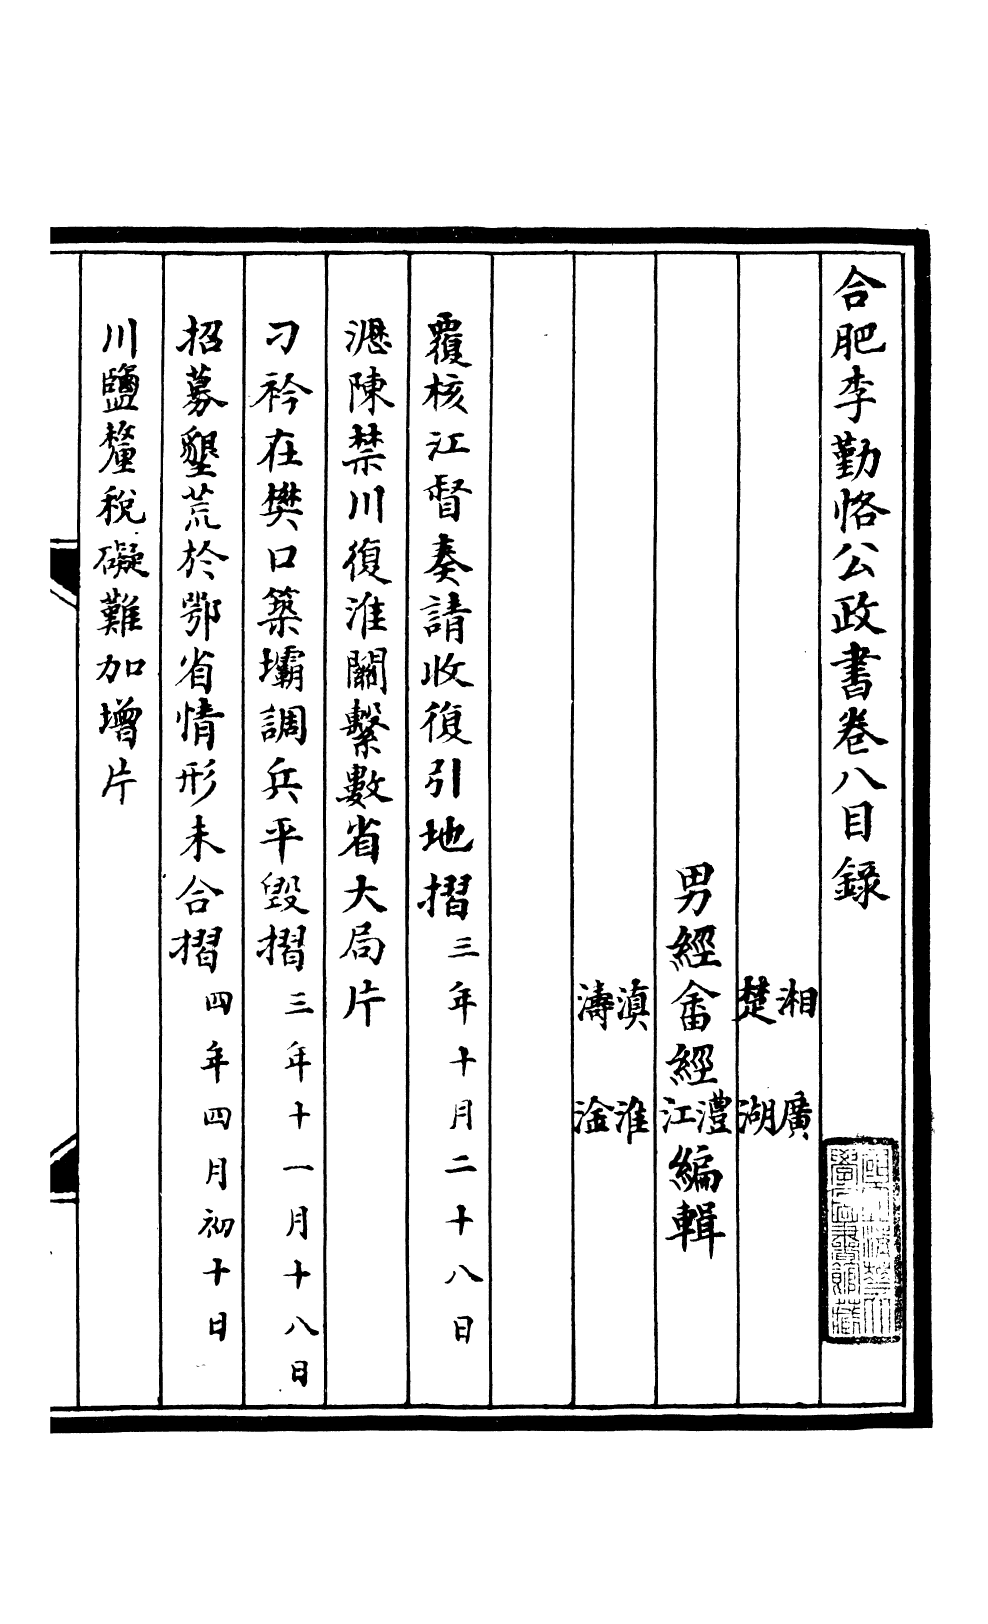 合肥李勤恪公政書卷八目錄
國立清華大
學圖書館藏
湘　廣
楚　湖
男經畬經澧江編輯
滇　淮
濤　淦
覆核江督奏請收復引地摺三年十月二十八日
瀝陳禁川復淮關繫數省大局片
刁衿在樊口築壩調兵平毀摺三年十一月十八日
招募墾荒於鄂省情形未合摺四年四月初十日
川鹽釐稅礙難加增片